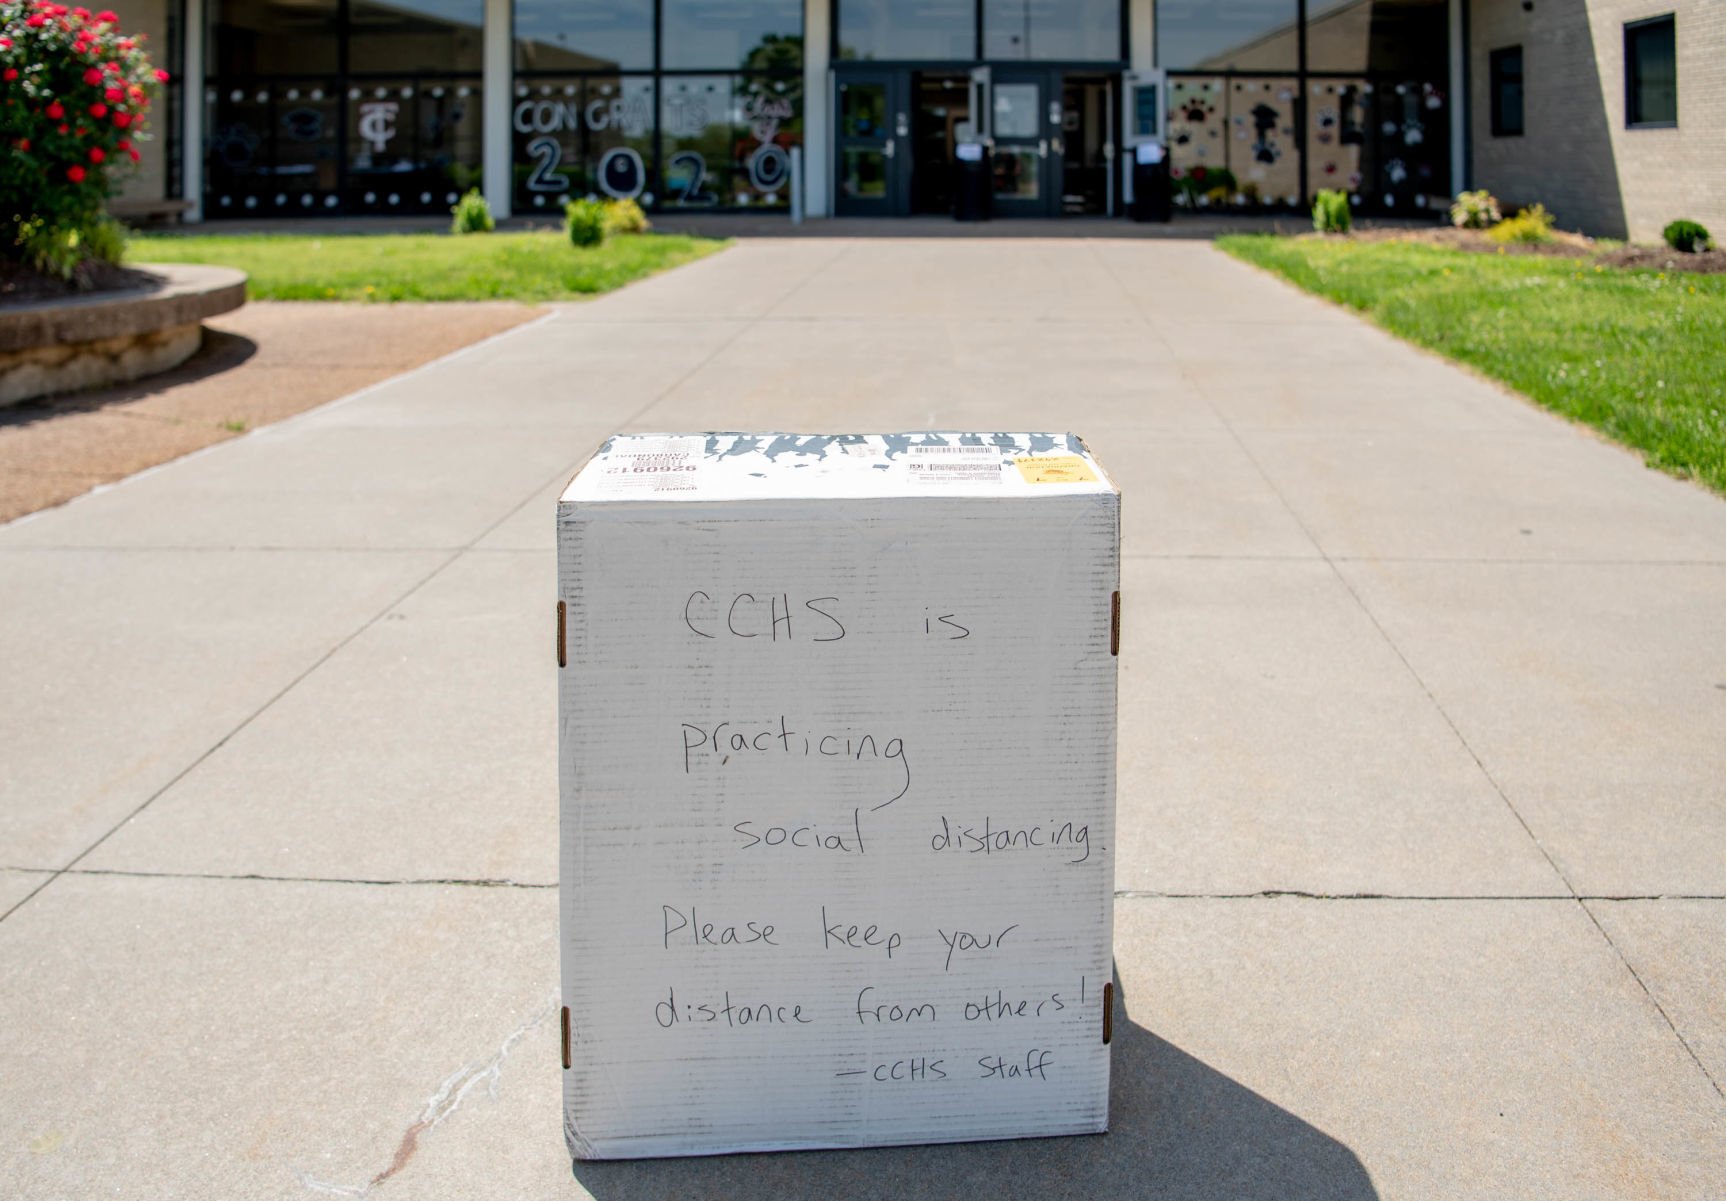 CONGRATS
Class
of
2020
TC
9260912
9260912
CCHS is
practicing
social distancing.
Please keep your
distance from others!
—CCHS Staff